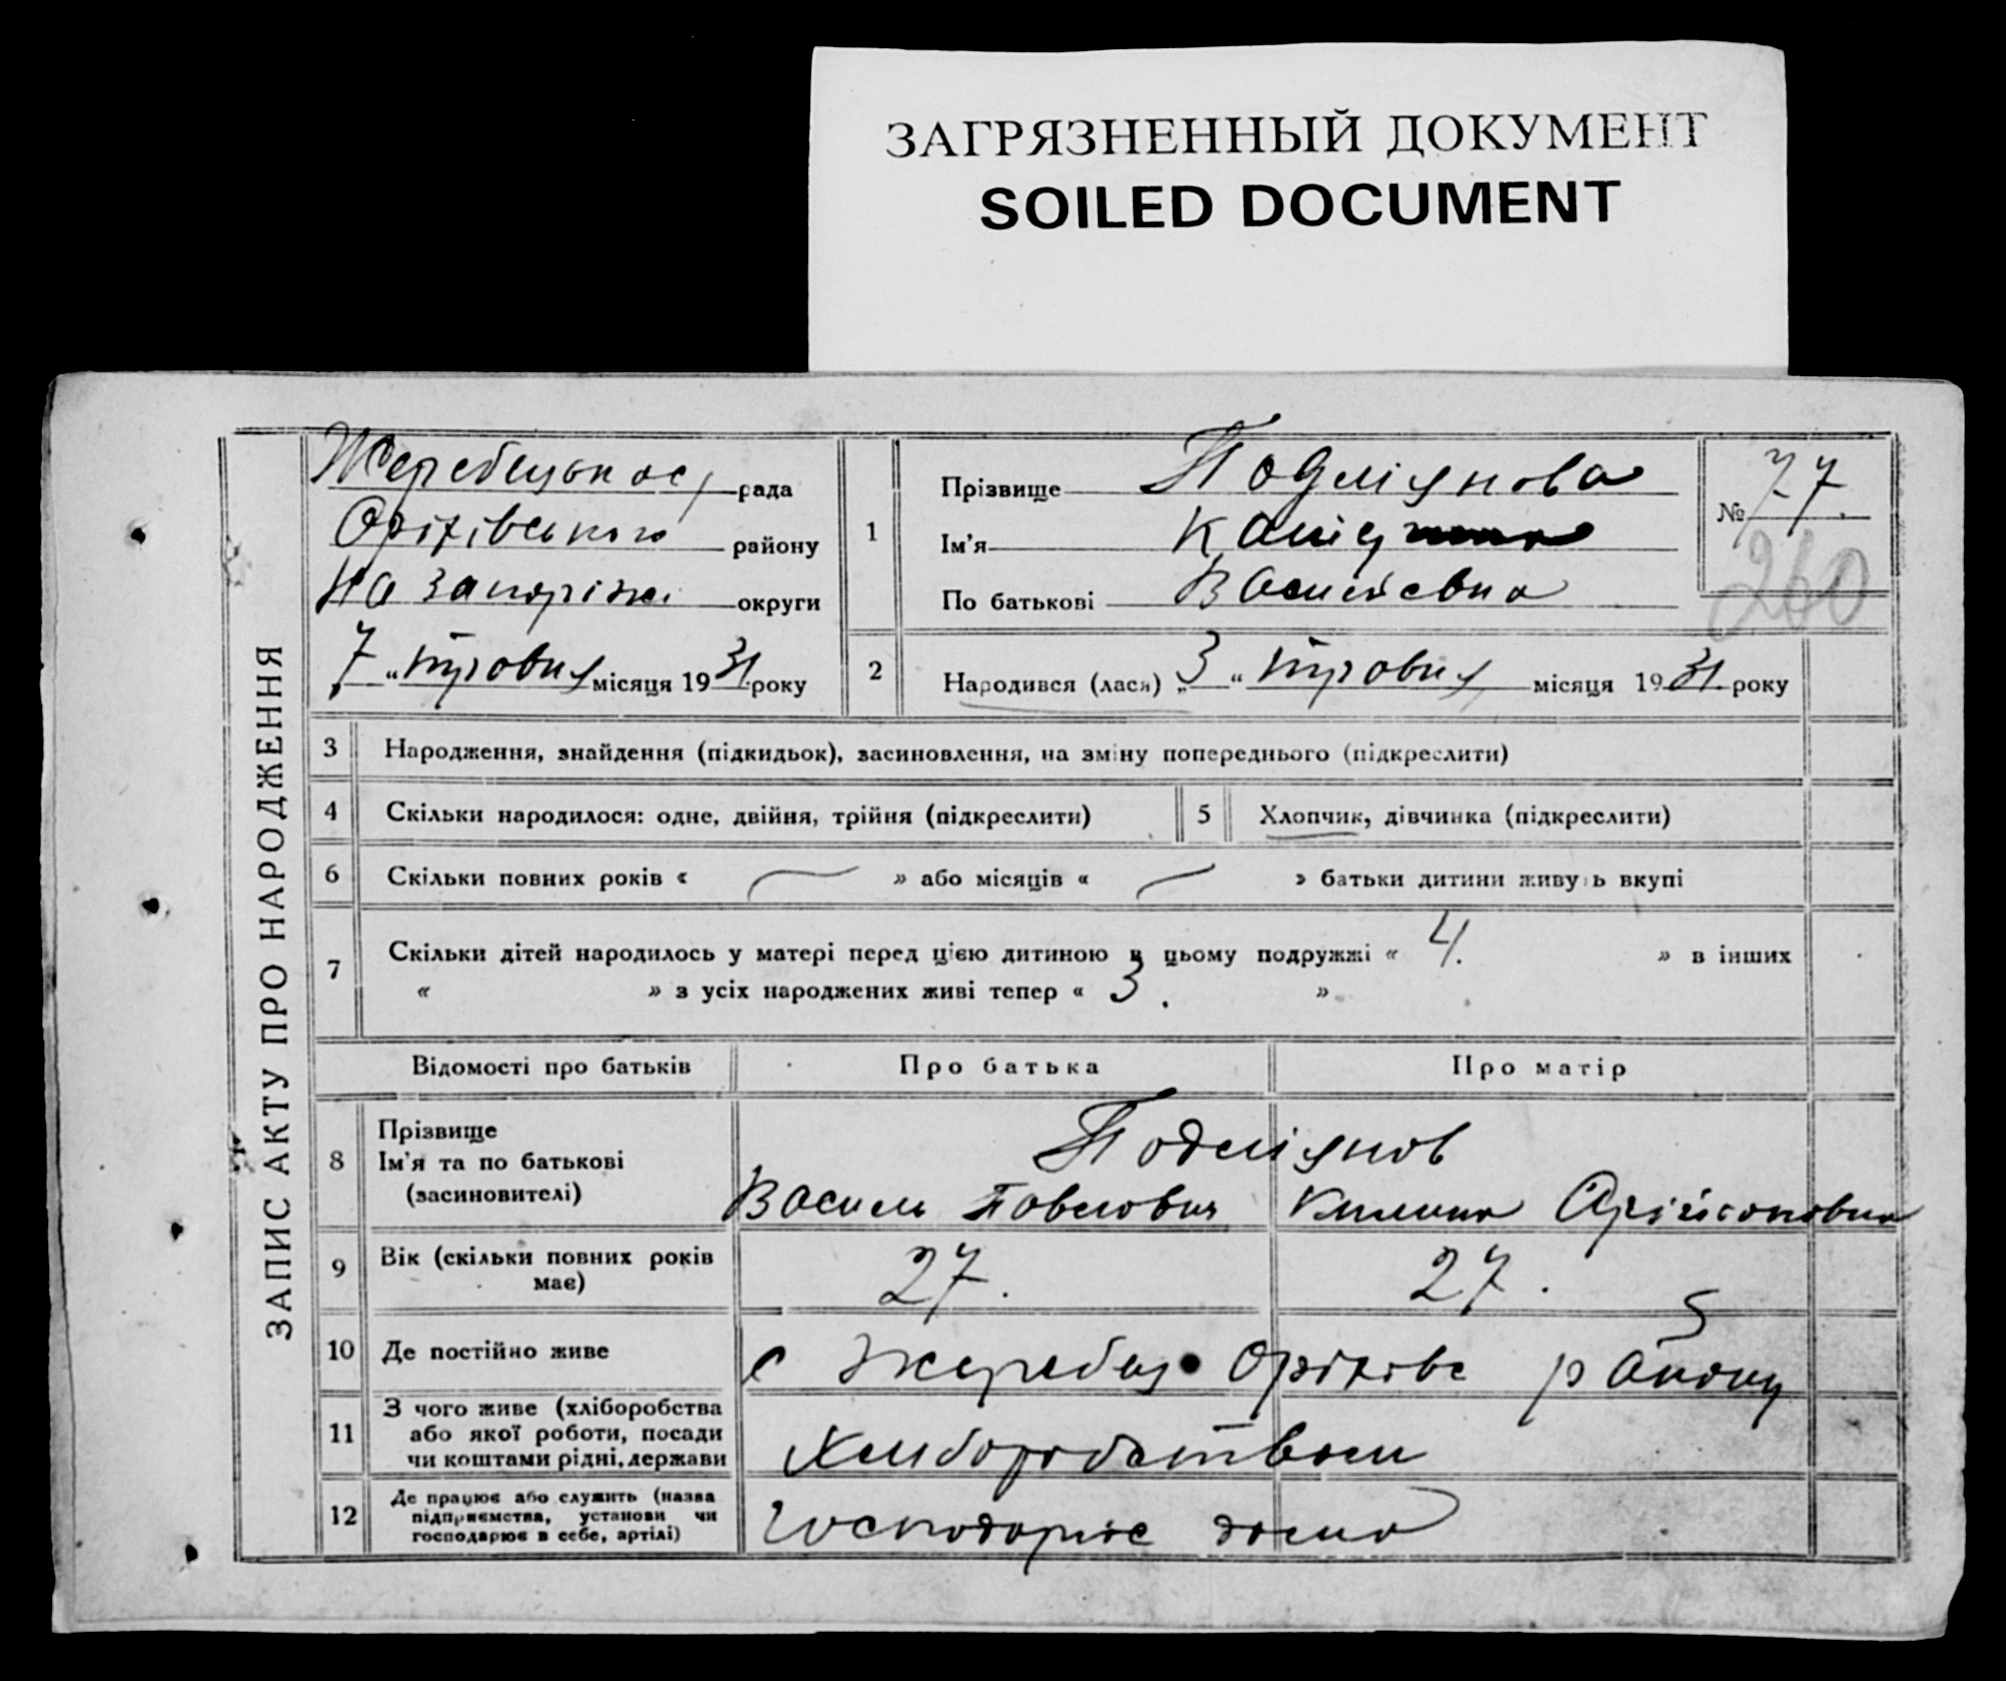 ЗАГРЯЗНЕННЫЙ ДОКУМЕНТ
SOILED DOCUMENT
ЗАПИС АКТУ ПРО НАРОДЖЕННЯ
рада
Оріхівського району
на Запоріжж округи
7 „ травня місяця 1931 року
1
Прізвище
Ім'я
По батькові Василівна
№ 77.
260
2 Народився (лася) „3“ травня місяця 1931 року
3 Народження, знайдення (підкидьок), засиновлення, на зміну попереднього (підкреслити)
4 Скільки народилося: одне, двійня, трійня (підкреслити) 5 Хлопчик, дівчинка (підкреслити)
6 Скільки повних років « » або місяців « » батьки дитини живуть вкупі
7 Скільки дітей народилось у матері перед цією дитиною в цьому подружжі « 4. » в інших
« » з усіх народжених живі тепер « 3. »
Відомості про батьків Про батька Про матір
8 Прізвище
Ім'я та по батькові
(засиновителі)
Василь Павлович
9 Вік (скільки повних років має) 27. 27.
10 Де постійно живе с Жеребец Оріхівс району
11 З чого живе (хліборобства
або якої роботи, посади
чи коштами рідні, держави
Хліборобством
12 Де працює або служить (назва
підприємства, установи чи
господарює в себе, артілі)
господарює дома